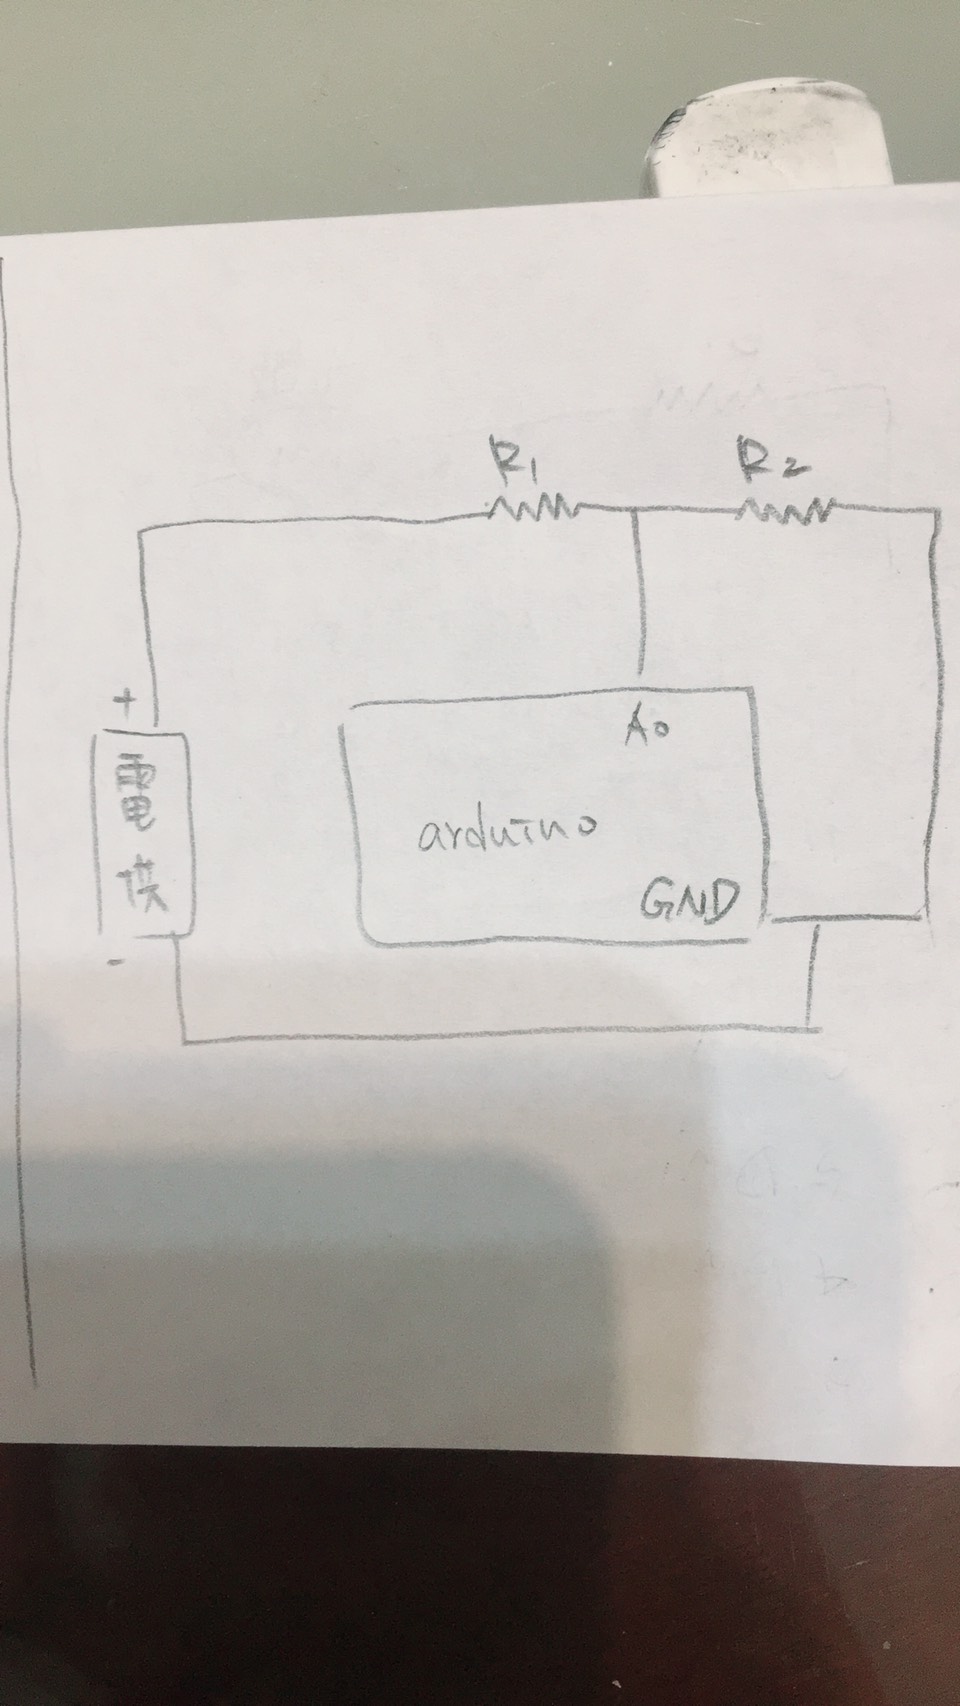 R1
R2
+
A0
電
arduino
GND
-